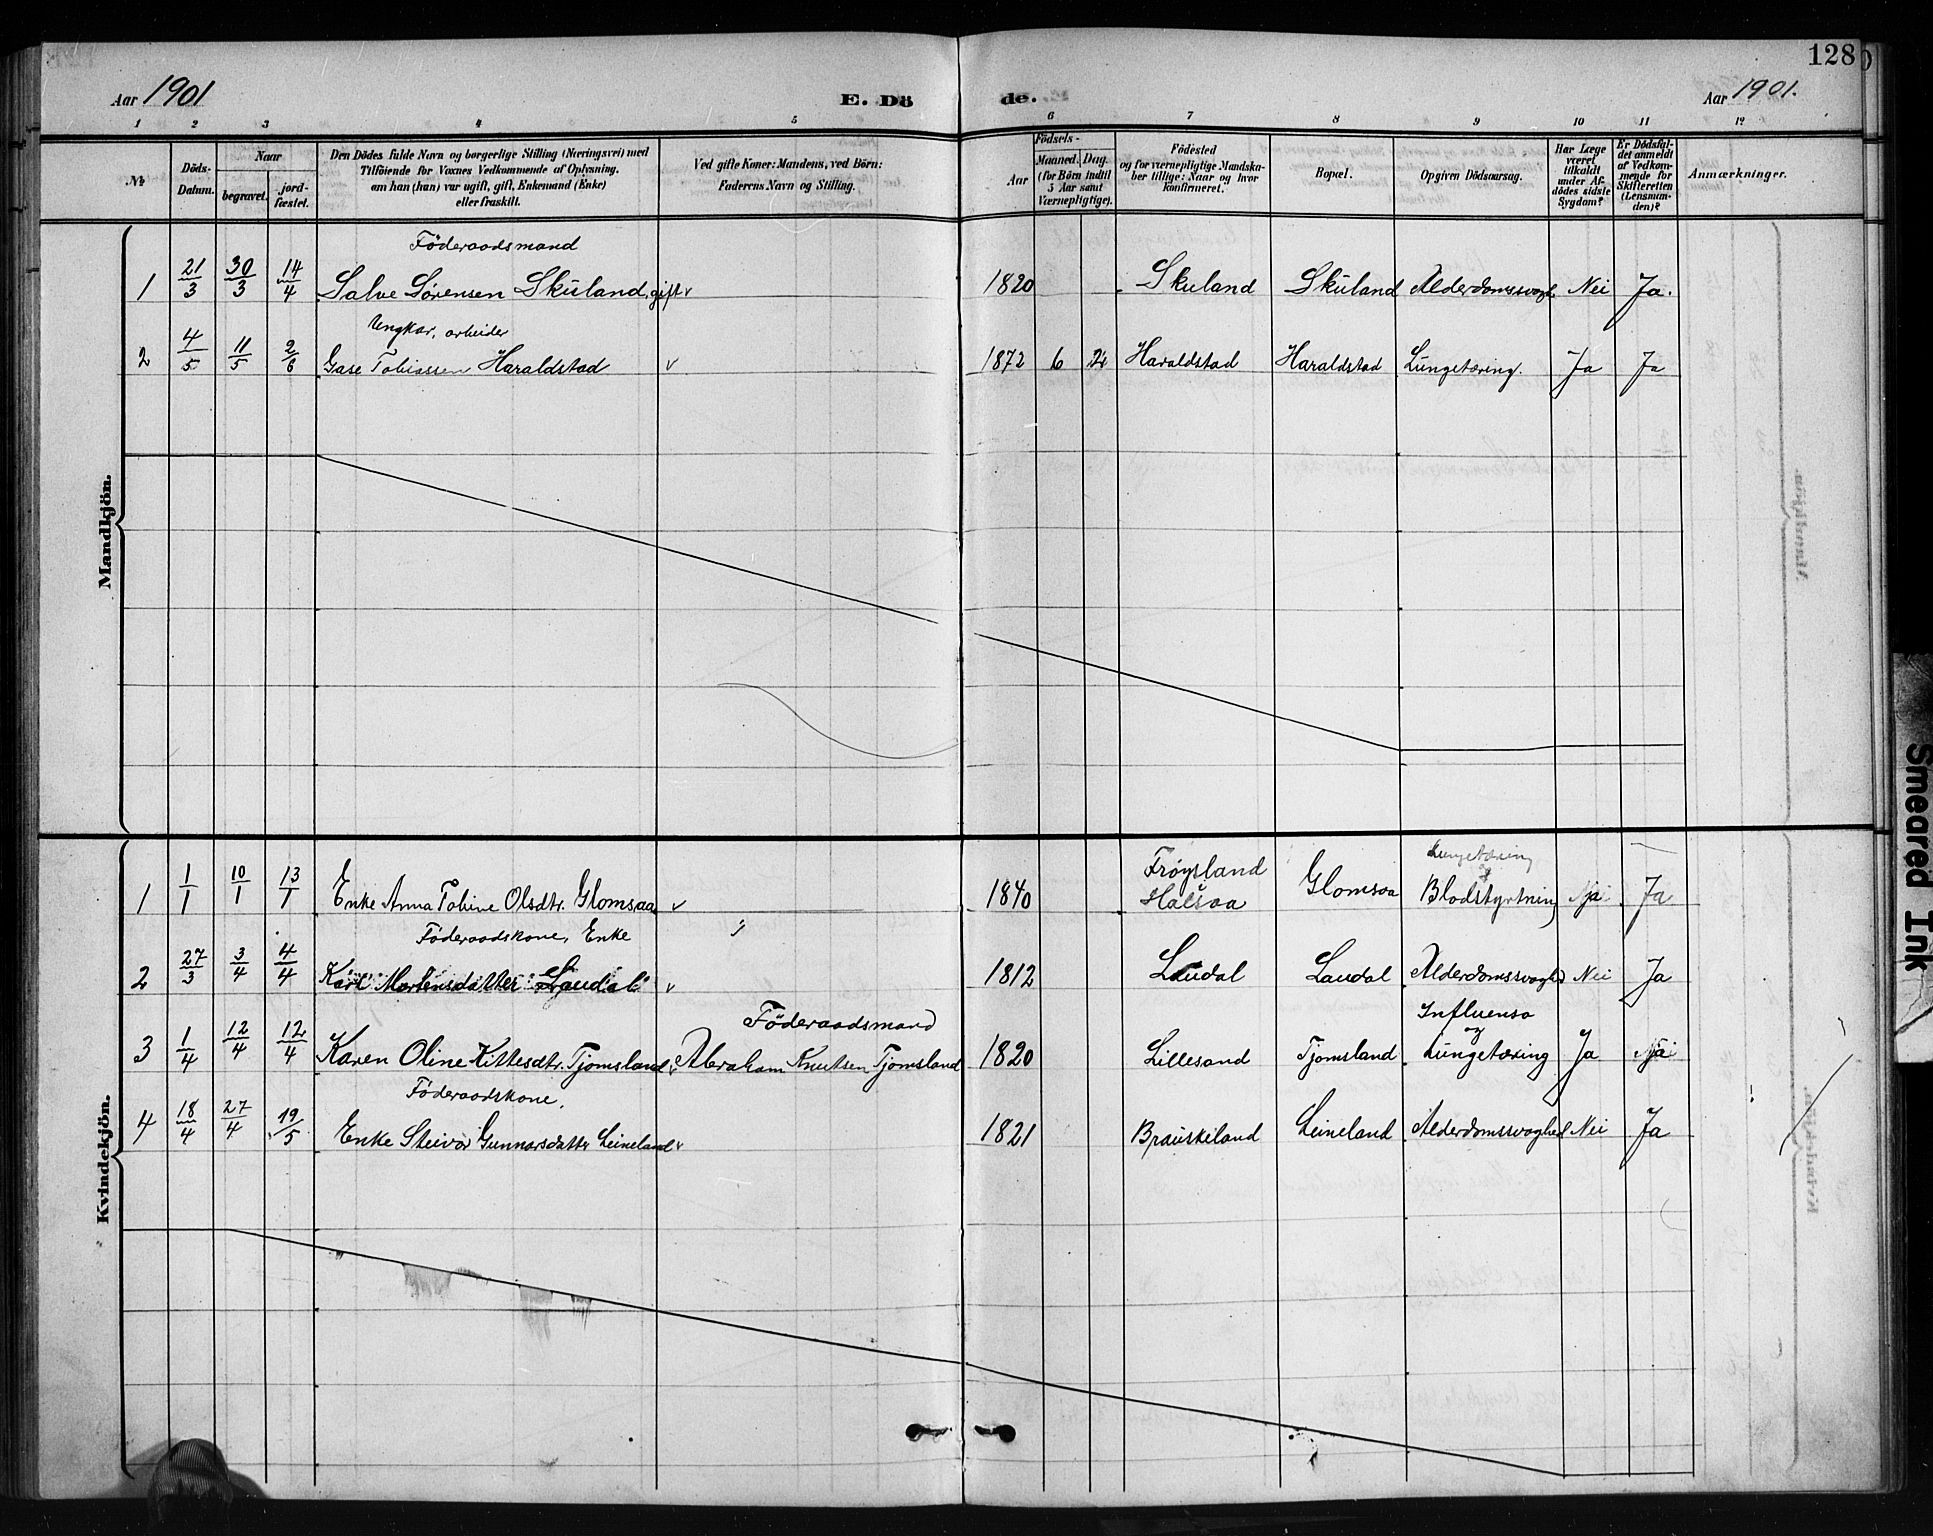 128
Aar 1901
E. Dö de.
Aar 1901.
1 2 3 4 5 6 7 8 9 10 11 12
№
Döds-Datum.
Naar
begravet.
jord-fæstet.
Den Dödes fulde Navn og borgerlige Stilling (Næringsvei) med
Tilföiende for Voxnes Vedkommende af Oplysning,
om han (hun) var ugift, gift, Enkemand (Enke)
eller fraskilt.
Ved gifte Koner: Mandens, ved Börn:
Faderens Navn og Stilling.
Födsels-
Aar
Maaned.
Dag.
(for Börn indtil
5 Aar samt
Værnepligtige).
Födested
og for værnepligtige Mandska-
ber tillige: Naar og hvor
konfirmeret.
Bopæl.
Opgiven Dödsaarsag.
Har Læge
været
tilkaldt
under Af-
dödes sidste
Sygdom?
Er Dödsfal-
det anmeldt
af Vedkom-
mende for
Skifteretten
(Lensman-
den)?
Anmærkninger.
Mandkjön.
Föderaadsmand
1 21/3 30/3 14/4 Salve Sørensen Skuland, gift 1820 Skuland Skuland Alderdomssvagh. Nei Ja.
Ungkar, arbeider
2 4/5 11/5 2/6 Gase Tobiassen Haraldstad 1872 6 24 Haraldstad Haraldstad Lungetæring. Ja Ja
Kvindekjön.
Lungetæring
Frøysland
1 1/1 10/1 13/1 Enke Anna Tobine Olsdtr. Glomsaa 1840 Halsaa Glomsaa Blodstyrtning Ja
Föderaadskone, Enke
2 27/3 3/4 4/4 Kari Mortensdatter Laudal 1812 Laudal Laudal Alderdomssvaghed Nei Ja
Föderaadsmand
Influensa
og
3 1/4 12/4 12/4 Karen Oline Kittesdtr. Tjomsland Abraham Knutsen Tjomsland 1820 Lillesand Tjomsland Lungetæring Ja
Föderaadskone,
4 18/4 27/4 19/5 Enke Steivor Gunnarsdatter Leineland 1821 Brauskeland Leineland Alderdomssvaghed Nei Ja
Smeared Ink